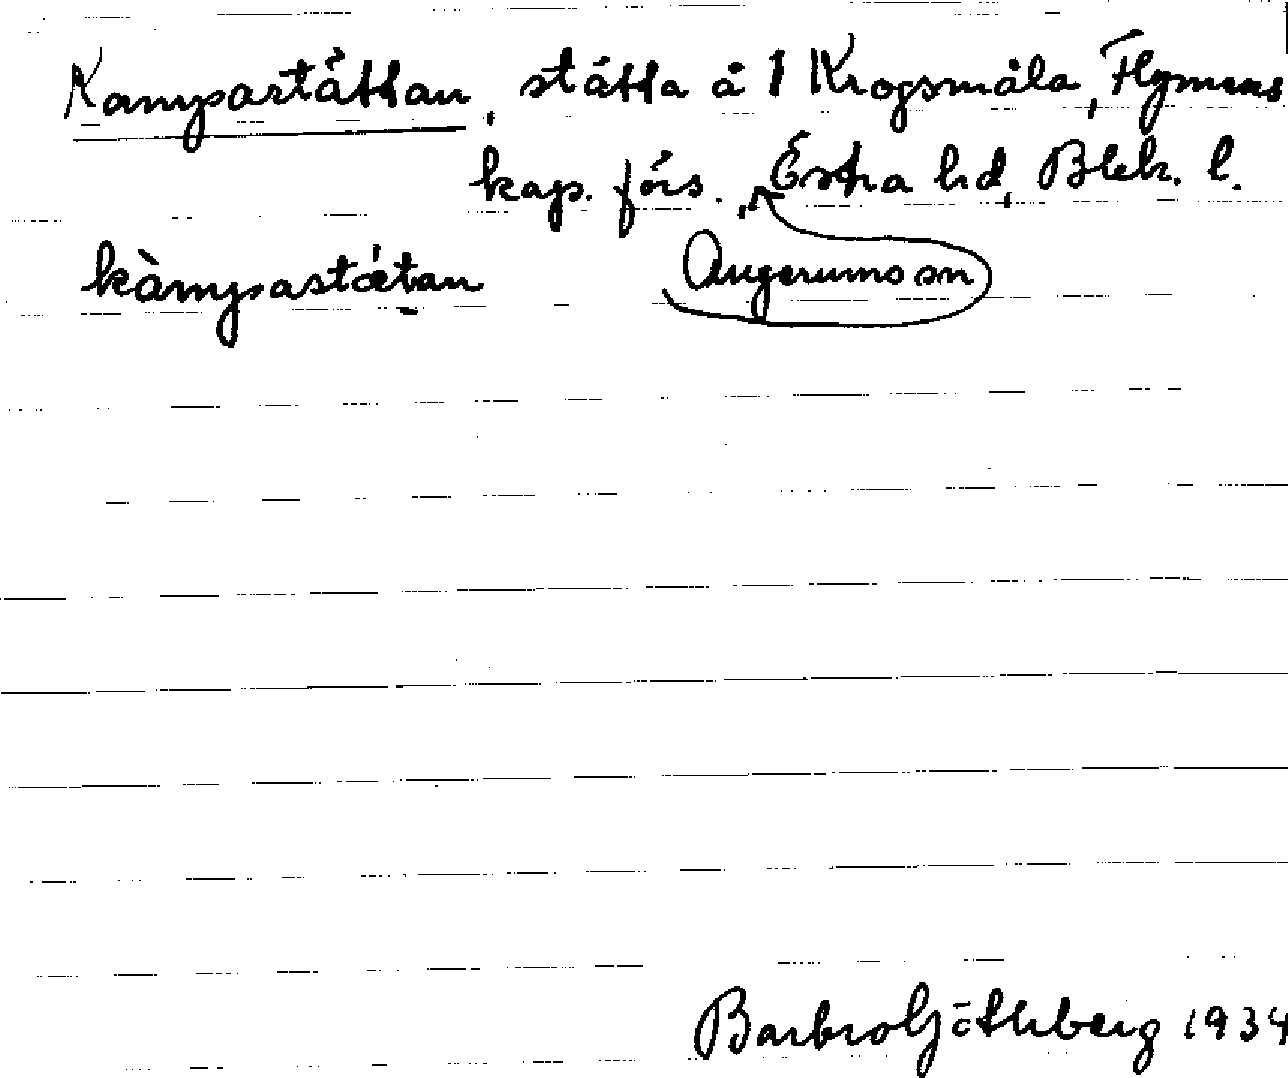 Kampastättan, stätta å 1 Krogsmåla, Flymens
kap. förs., Östra hd, Blek. l.
kàmpastǽtan Augerums sn
Barbro Göthberg 1934